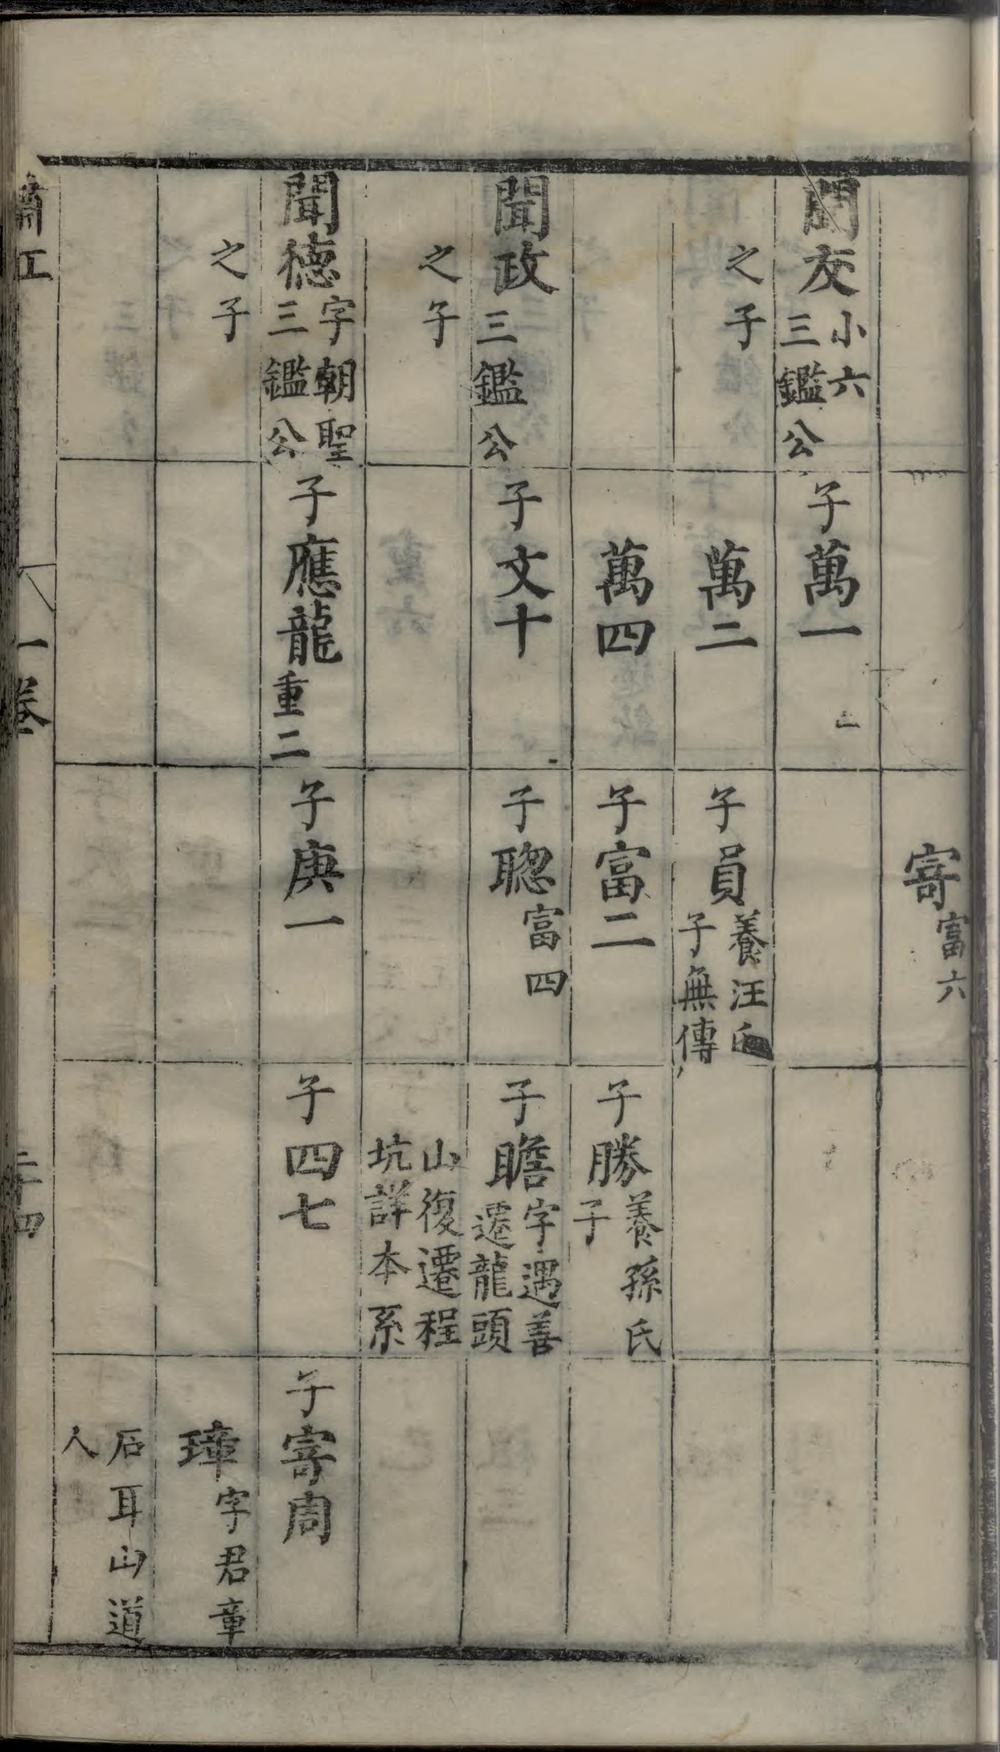 寄富六
聞友小六三鑑公
之子
子萬一
萬二
萬四
子員養汪氏子無傳
子富二
子勝養孫氏子
聞政三鑑公
之子
子文十
子聰富四
子瞻字遇善遷龍頭
山復遷程坑詳本系
聞德字朝聖三鑑公
之子
子應龍重二
子庚一
子四七
子寄周
璋字君章
石耳山道
人
一卷
二十四